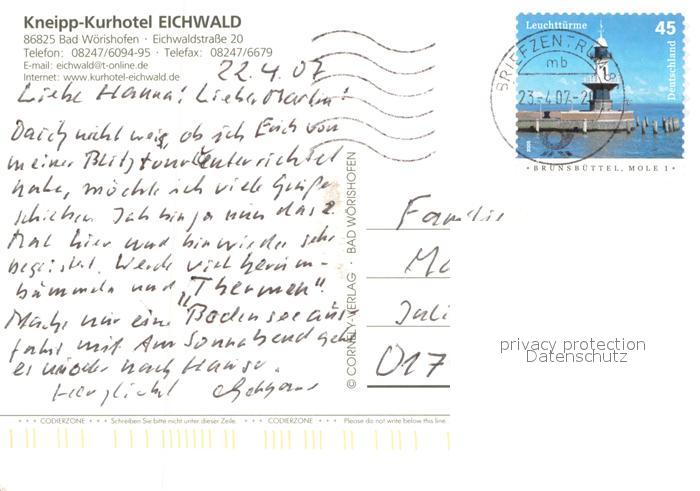 Kneipp-Kurhotel EICHWALD
86825 Bad Wörishofen · Eichwaldstraße 20
Telefon: 08247/6094-95 · Telefax: 08247/6679
E-mail: eichwald@t-online.de
Internet: www.kurhotel-eichwald.de
22.4.07
Liebe Hanna! Lieber Martin!
Da ich nicht weiß, ob ich Euch von
meiner Blitztour unterrichtet
habe, möchte ich viele Grüße
schicken. Ich bin ja nun das 2.
Mal hier und bin wieder sehr
begeistert. Werde viel herum-
bummeln und „Thermen“.
Mache nur eine Bodenseeaus-
fahrt mit. Am Sonnabend geht
es wieder nach Hause.
Herzlichst
© CORNELY-VERLAG · BAD WÖRISHOFEN
Leuchttürme
45
Deutschland
2005
BRUNSBÜTTEL, MOLE 1
BRIEFZENTRUM
mb
23.-4.07-2
Familie
Ma
Juli
017
privacy protection
Datenschutz
• • • CODIERZONE • • • Schreiben Sie bitte nicht unter dieser Zeile. • • • CODIERZONE • • • Please do not write below this line.